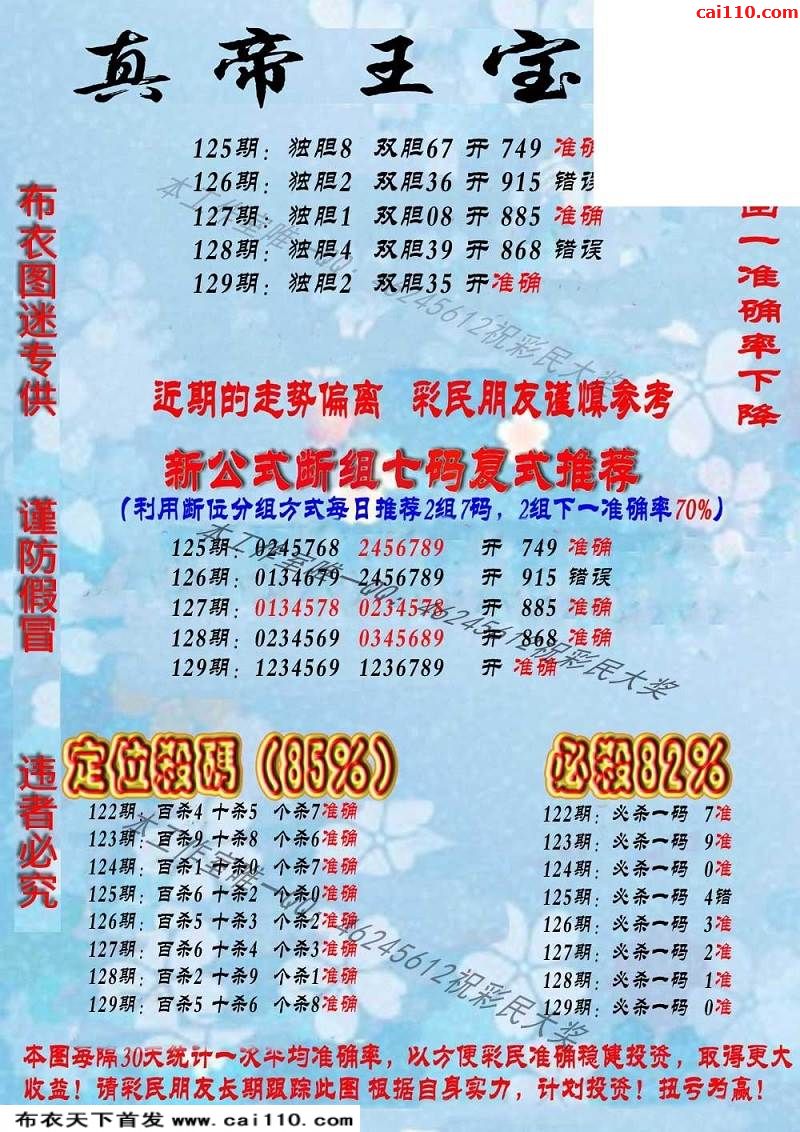 cai110.com
真帝王宝
125期：独胆8 双胆67 开 749 准确
126期：独胆2 双胆36 开 915 错误
127期：独胆1 双胆08 开 885 准确
128期：独胆4 双胆39 开 868 错误
129期：独胆2 双胆35 开准确
布衣图迷专供
谨防假冒
违者必究
一准确率下降
近期的走势偏离 彩民朋友谨慎参考
新公式断组七码复式推荐
（利用断位分组方式每日推荐2组7码，2组下一准确率70%）
125期：0245768 2456789 开 749 准确
126期：0134679 2456789 开 915 错误
127期：0134578 0234578 开 885 准确
128期：0234569 0345689 开 868 准确
129期：1234569 1236789 开 准确
定位殺碼（85%）
122期：百杀4 十杀5 个杀7准确
123期：百杀9 十杀8 个杀6准确
124期：百杀1 十杀0 个杀7准确
125期：百杀6 十杀2 个杀0准确
126期：百杀5 十杀3 个杀2准确
127期：百杀6 十杀4 个杀3准确
128期：百杀2 十杀9 个杀1准确
129期：百杀5 十杀6 个杀8准确
必殺82%
122期：必杀一码 7准
123期：必杀一码 9准
124期：必杀一码 0准
125期：必杀一码 4错
126期：必杀一码 3准
127期：必杀一码 2准
128期：必杀一码 1准
129期：必杀一码 0准
本工作室唯一QQ：46245612祝彩民大奖
本工作室唯一QQ：46245612祝彩民大奖
本工作室唯一QQ：46245612祝彩民大奖
本图每隔30天统计一次平均准确率，以方便彩民准确稳健投资，取得更大
收益！请彩民朋友长期跟踪此图 根据自身实力，计划投资！扭亏为赢！
布衣天下首发 www.cai110.com